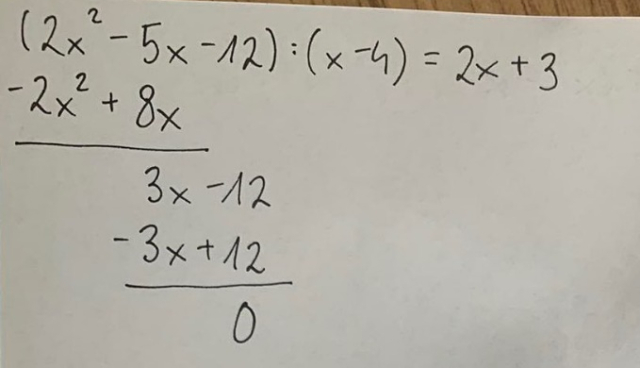 (2x² - 5x - 12) : (x - 4) = 2x + 3
-2x² + 8x
3x - 12
-3x + 12
0